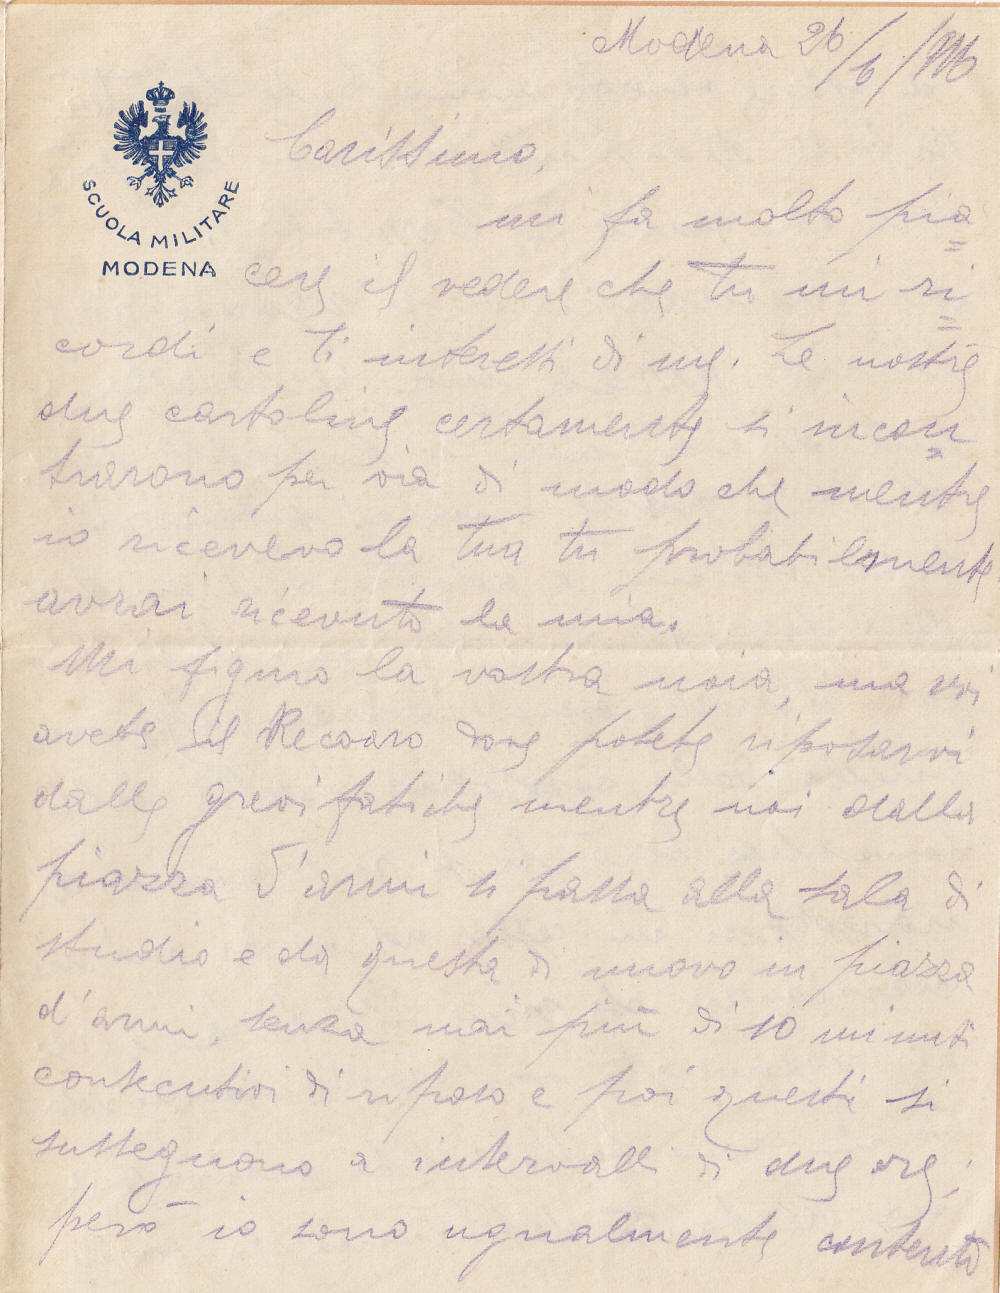 Modena 26/6/1916
SCUOLA MILITARE
MODENA
Carissimo,
mi fa molto pia=
cere il vedere che tu mi ri=
cordi e ti interessi di me. Le nostre
due cartoline certamente si incon=
trarono per via di modo che mentre
io ricevevo la tua tu probabilmente
avrai ricevuto la mia.
Mi figuro la vostra noia, ma voi
avete il Recoaro dove potete riposarvi
dalle grevi fatiche mentre noi dalla
piazza d'armi si passa alla sala di
studio e da questa di nuovo in piazza
d'armi, senza mai più di 10 minuti
consecutivi di riposo e poi questi si
susseguono a intervalli di due ore;
però io sono ugualmente contento